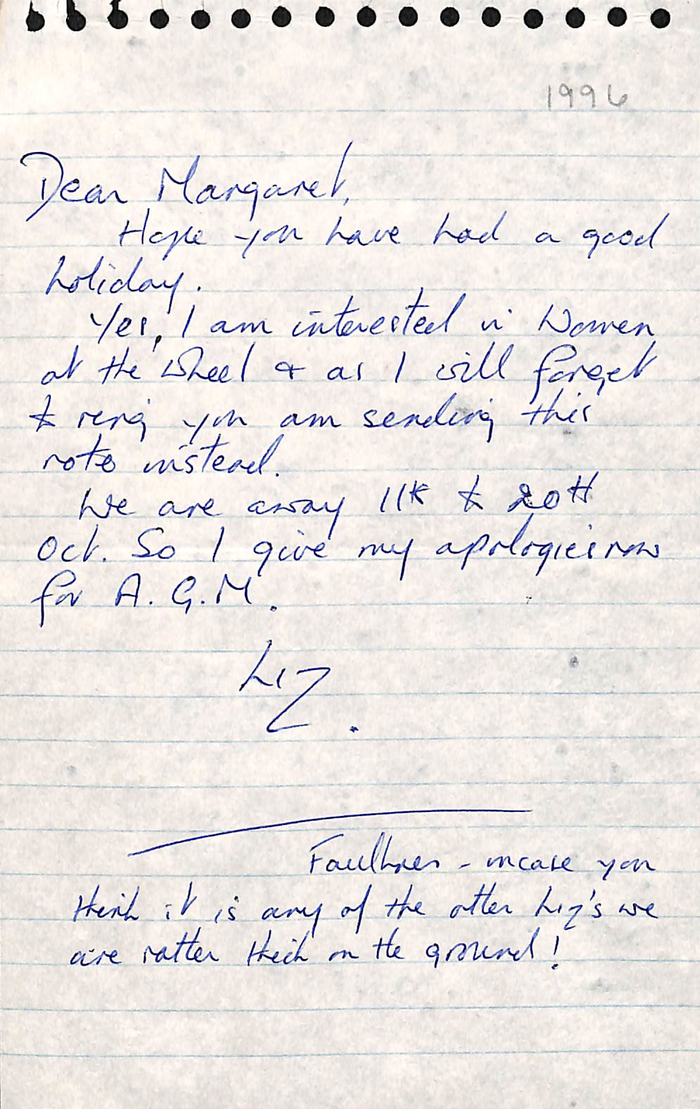 1996
Dear Margaret,
Hope you have had a good
holiday.
Yes, I am interested in Women
at the Wheel & as I will forget
to ring you am sending this
note instead.
We are away 11th to 20th
Oct. So I give my apologies now
for A.G.M.
Liz.
Faulkner - incase you
think it is any of the other Liz's we
are rather thick on the ground!